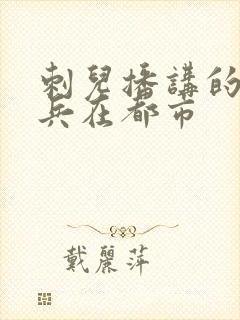 刺兒播講的
兵在都市
戴麗萍